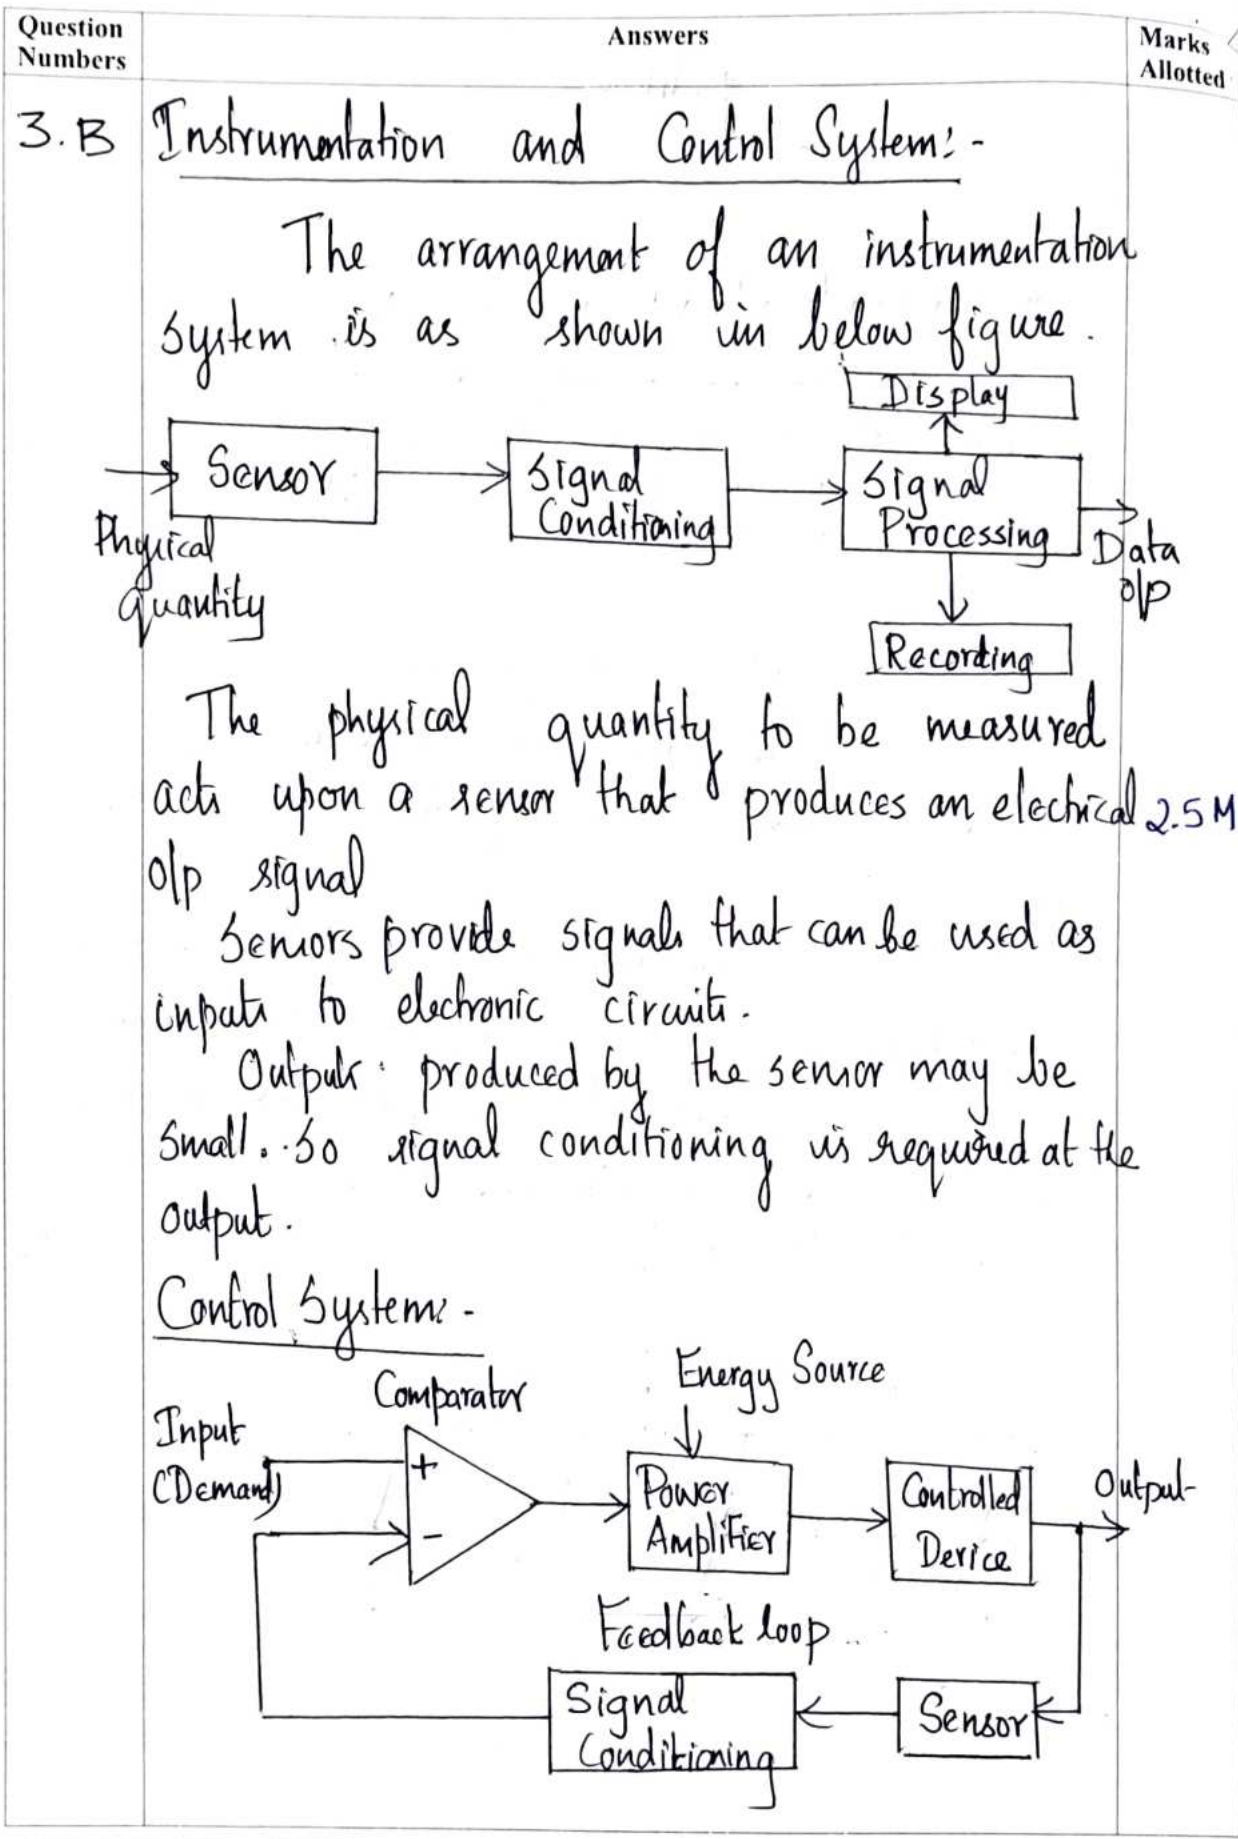 Question Numbers
Answers
Marks Allotted
3.B Instrumentation and Control System:-
The arrangement of an instrumentation
system is as shown in below figure.
Display
Sensor
Signal
Conditioning
Signal
Processing
Physical
quantity
Data
o/p
Recording
The physical quantity to be measured
acts upon a sensor that produces an electrical 2.5M
o/p signal
Sensors provide signals that can be used as
inputs to electronic circuits.
Outputs produced by the sensor may be
small. So signal conditioning is required at the
output.
Control System:-
Energy Source
Comparator
Input
(Demand)
+
-
Power
Amplifier
Controlled
Device
Output
Feedback loop
Signal
Conditioning
Sensor